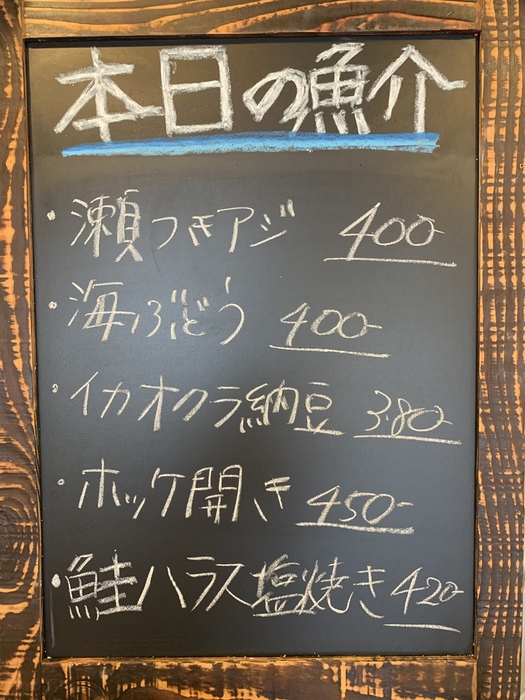 本日の魚介
・瀬つきアジ 400-
・海ぶどう 400-
・イカオクラ納豆 380-
・ホッケ開き 450-
・鮭ハラス塩焼き 420-